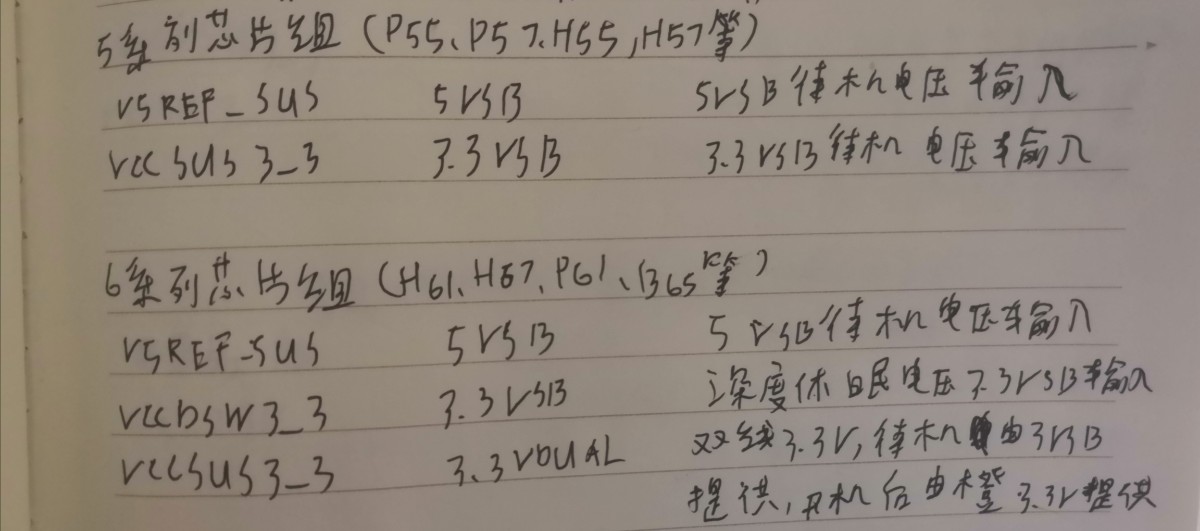 5系列芯片组（P55、P57、H55，H57等）
V5REF_SUS 5VSB 5VSB待机电压输入
VCCSUS3_3 3.3VSB 3.3VSB待机电压输入
6系列芯片组（H61、H67、P61、B65等）
V5REF_SUS 5VSB 5VSB待机电压输入
VCCDSW3_3 3.3VSB 深度休眠电压3.3VSB输入
VCCSUS3_3 3.3VDUAL 双线3.3V，待机由3VSB
提供，开机后由橙3.3V提供